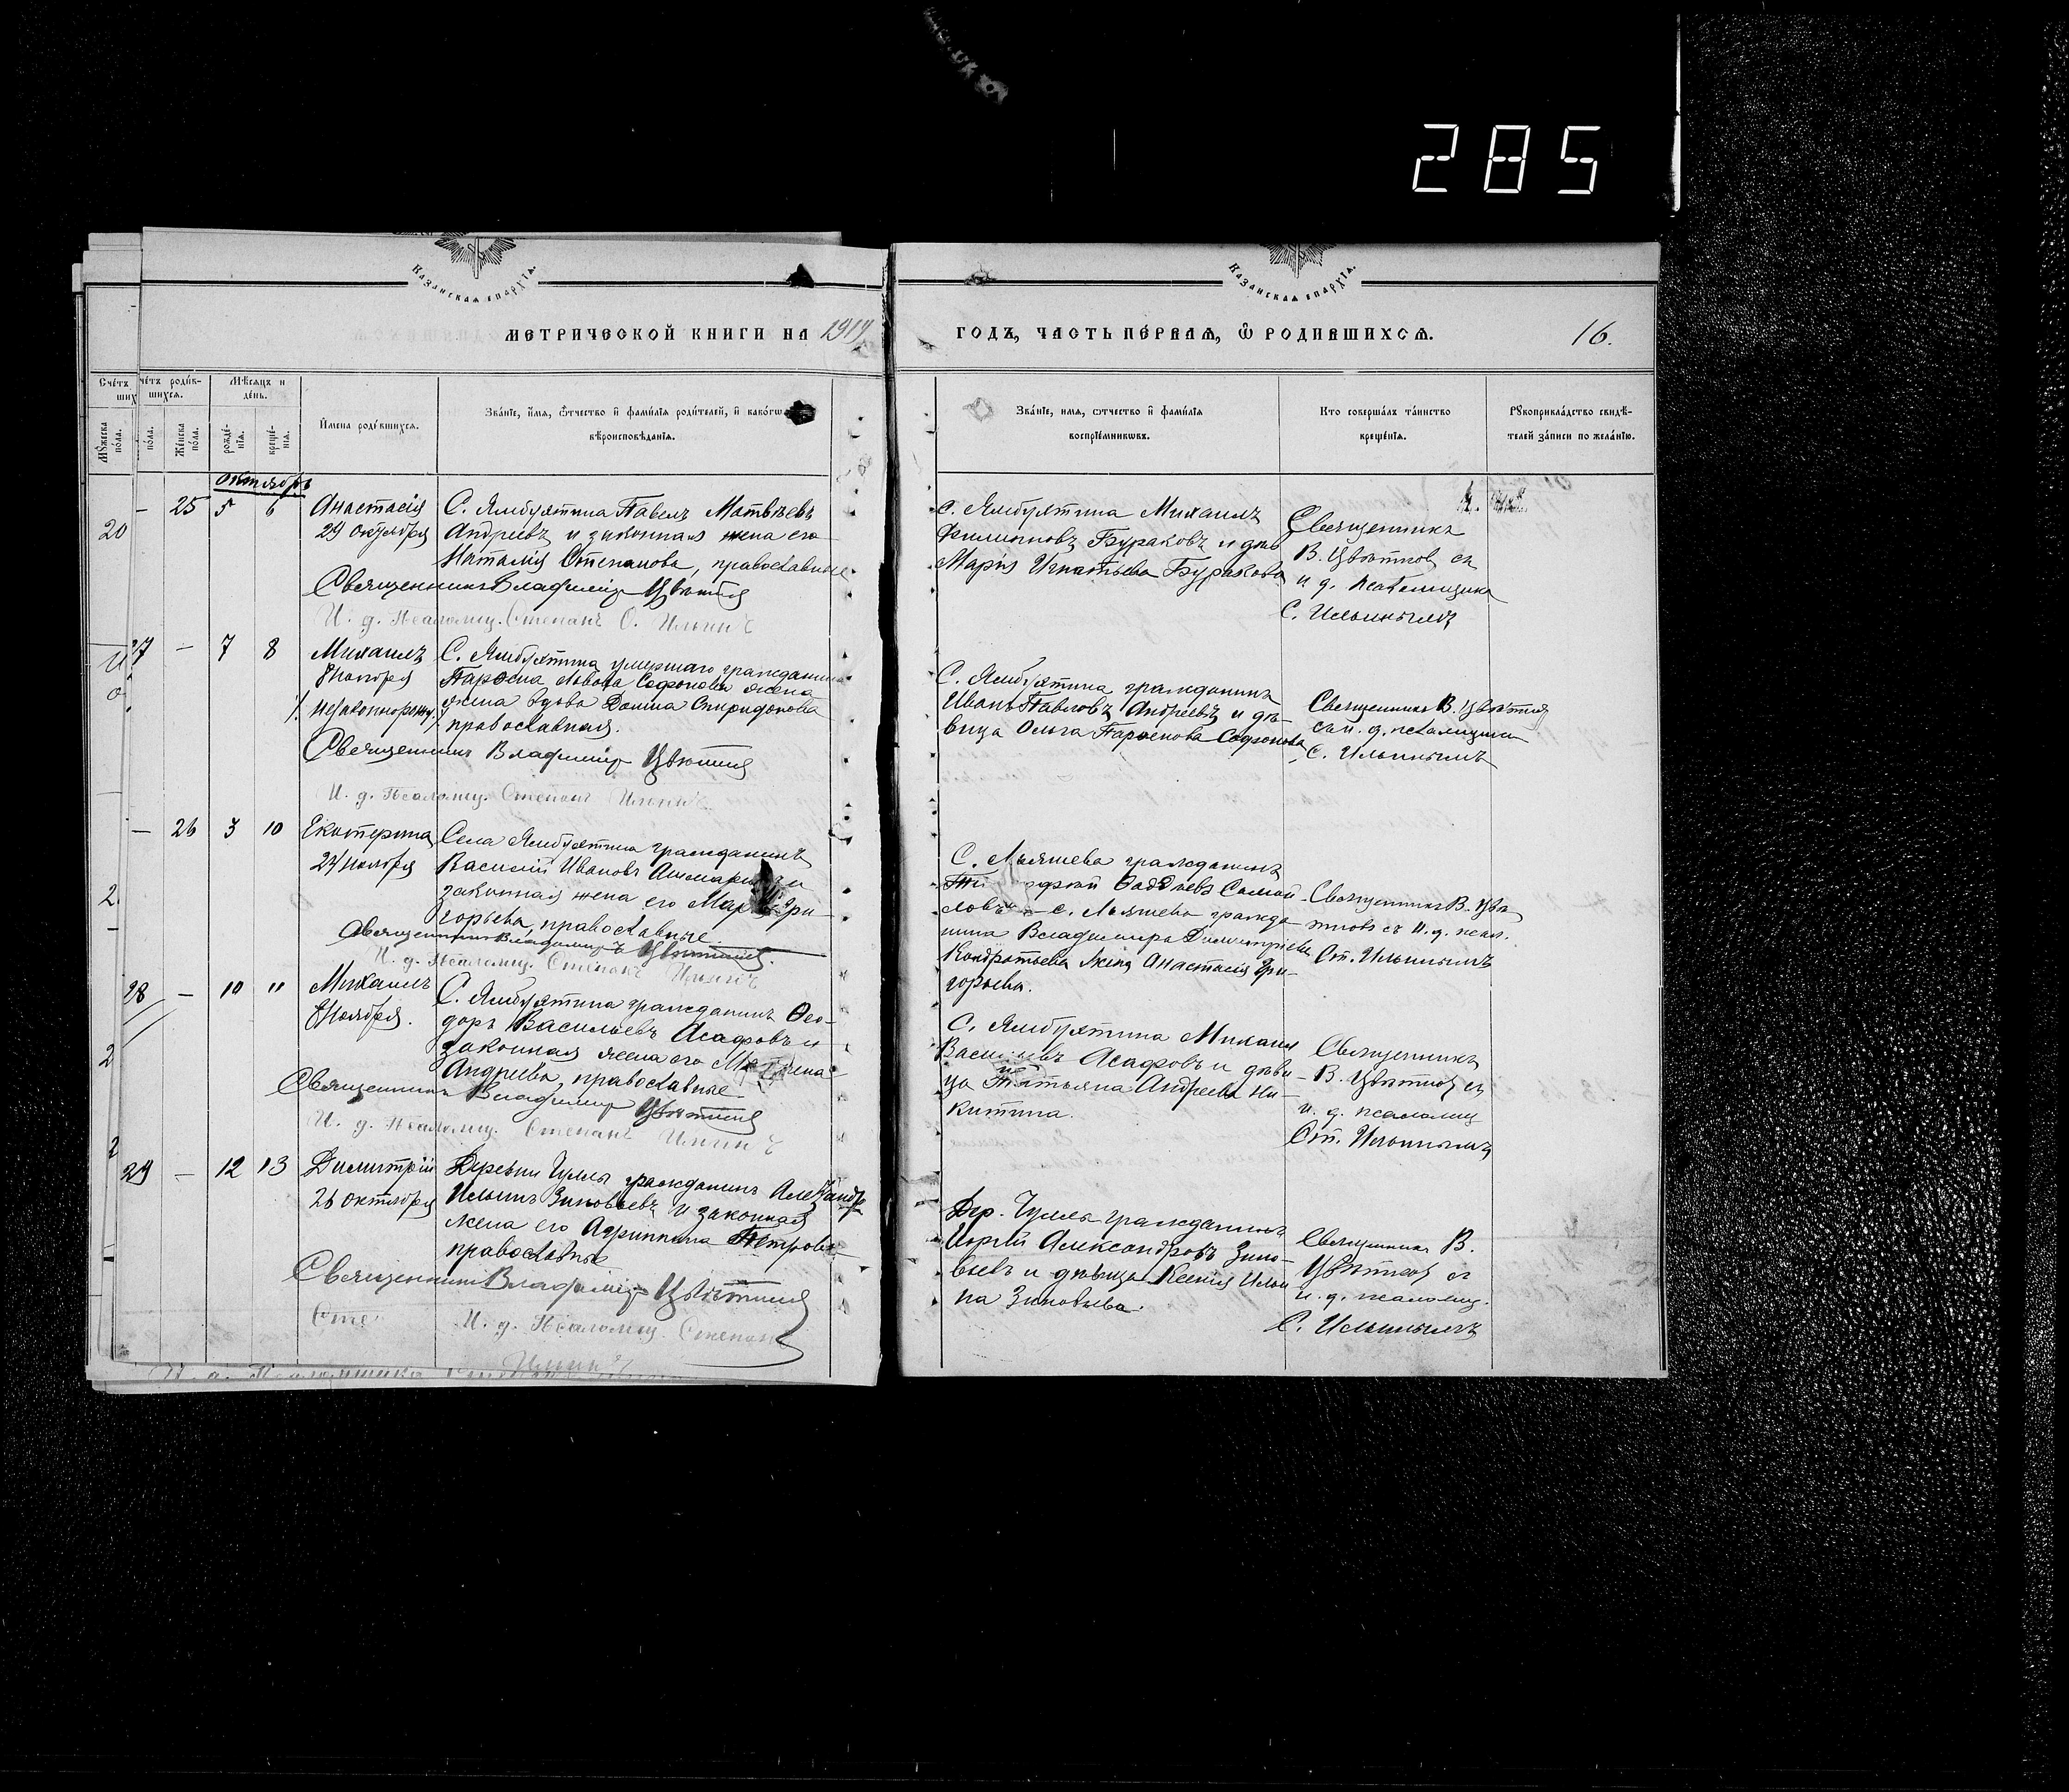 285
Казанская епархїя.
Казанская епархїя.
МЕТРИЧЕСКОЙ КНИГИ НА 1919
ГОДЪ, ЧАСТЬ ПЕРВАЯ, Ѡ РОДИВШИХСЯ.
16.
Счетъ родив-
шихся.
Мѣсяцъ и
день.
Мужеска
пола.
Женска
пола.
рожде-
нїя.
креще-
нїя.
Имена родившихся.
Званїе, имя, отчество и фамилїя родителей, и какогѡ
вѣроисповѣданїя.
Званїе, имя, отчество и фамилїя
воспрїемниковъ.
Кто совершалъ таинство
крещенїя.
Рукоприкладство свидѣ-
телей записи по желанїю.
Октябрь
— 25 5 6
Анастасія
29 октября
С. Ямбухтина Павелъ Матвѣевъ
Андреевъ и законная жена его
Наталія Степанова, православные
Священникъ Владиміръ Цвѣтковъ
И. д. Псаломщ. Степанъ О. Ильинъ
с. Ямбухтина Михаилъ
Филипповъ Бураковъ и дѣв.
Марія Игнатьева Буракова
Священникъ
В. Цвѣтковъ съ
и д. псаломщика
С. Ильинымъ
27 — 7 8
Михаилъ
8 ноября
незаконнорожд.
С. Ямбухтина умершаго гражданина
Парѳена Софонова жена
вдова Домна Спиридонова
православная.
Священникъ Владиміръ Цвѣтковъ
И. д. Псаломщ. Степанъ Ильинъ
С. Ямбухтина гражданинъ
Иванъ Павловъ Андреевъ и дѣ-
вица Ольга Парѳенова Софонова
Священникъ В. Цвѣтковъ
съ и. д. псаломщика
С. Ильинымъ
— 26 3 10
Екатерина
24 ноября
Села Ямбухтина гражданинъ
Василій Ивановъ
законная жена его Гри-
горьева, православные
Священникъ Владиміръ Цвѣтковъ.
И. д. Псаломщ. Степанъ Ильинъ
гражданинъ
с. гражда-
нина Владимира Димитріева
Кондратьева жена Анастасія Гри-
горьева.
Священникъ В. Цвѣ-
тковъ съ и. д. псал.
Ст. Ильинымъ
28 — 10 "
Михаилъ
8 Ноября.
С. Ямбухтина гражданинъ Ѳео-
доръ Васильевъ Асафовъ и
законная жена его
Андреева, православные
Священникъ Владиміръ Цвѣтковъ
И. д. Псаломщ. Степанъ Ильинъ
С. Ямбухтина Михаилъ
Васильевъ Асафовъ и дѣви-
ца Татьяна Андреева Ни-
китина.
Священникъ
В. Цвѣтковъ съ
и. д. псаломщ
Ст. Ильинымъ
29 — 12 13
Димитрій
26 октября
Деревни Чулпы гражданинъ Александръ
Ильинъ Зиновьевъ и законная
жена его Агриппина Петрова
православные
Священникъ Владиміръ Цвѣтковъ
И. д. Псаломщ. Степанъ
Ильинъ
Дер. гражданинъ
Александровъ Зино-
вьевъ и дѣвица Ксенія Ильи-
на Зиновьева.
Священникъ В.
Цвѣтковъ съ
и. д. псаломщ.
С. Ильинымъ